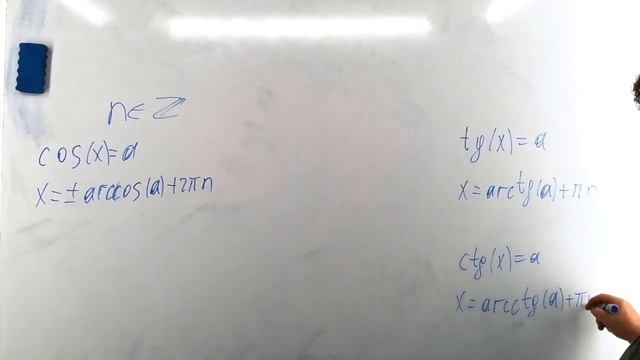 n∈ℤ
cos(x)=a
x=±arccos(a)+2πn
tg(x)=a
x=arctg(a)+πn
ctg(x)=a
x=arcctg(a)+π